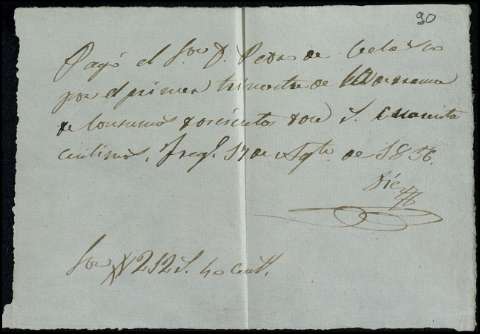 90
Pagó el Sor D. Pedro de
por el primer trimestre de
de Consumos doscientos doce r. cuarenta
centimos. 17 de Agto de 1856.
Son 212 r. 40 cent.